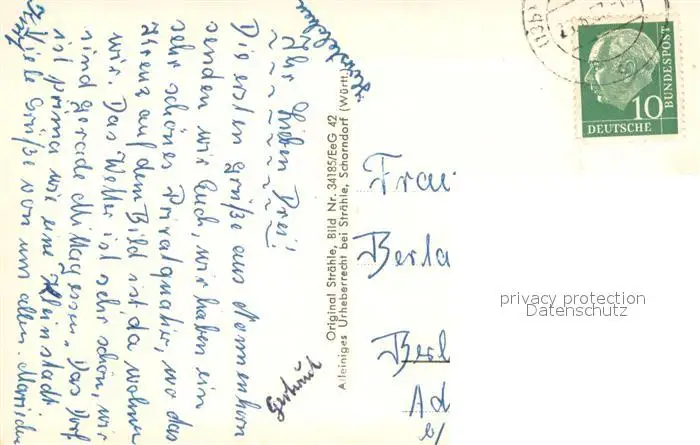 Ihr Lieben Drei!
Die ersten Grüße aus Nonnenhorn
senden wir Euch, wir haben ein
sehr schönes Privatquatier, wo das
Kreuz auf dem Bild ist da wohnen
wir. Das Wetter ist sehr schön, wir
sind gerade Mittagessen. Das Dorf
ist prima wie eine Kleinstadt.
Viele Grüße von uns allen.
Gertrud
Original Strähle, Bild Nr. 34185/EeG 42
Alleiniges Urheberrecht bei Strähle, Schorndorf (Württ.)
10
DEUTSCHE
BUNDESPOST
Frau
Berta
Berl
Ad
b/
privacy protection
Datenschutz